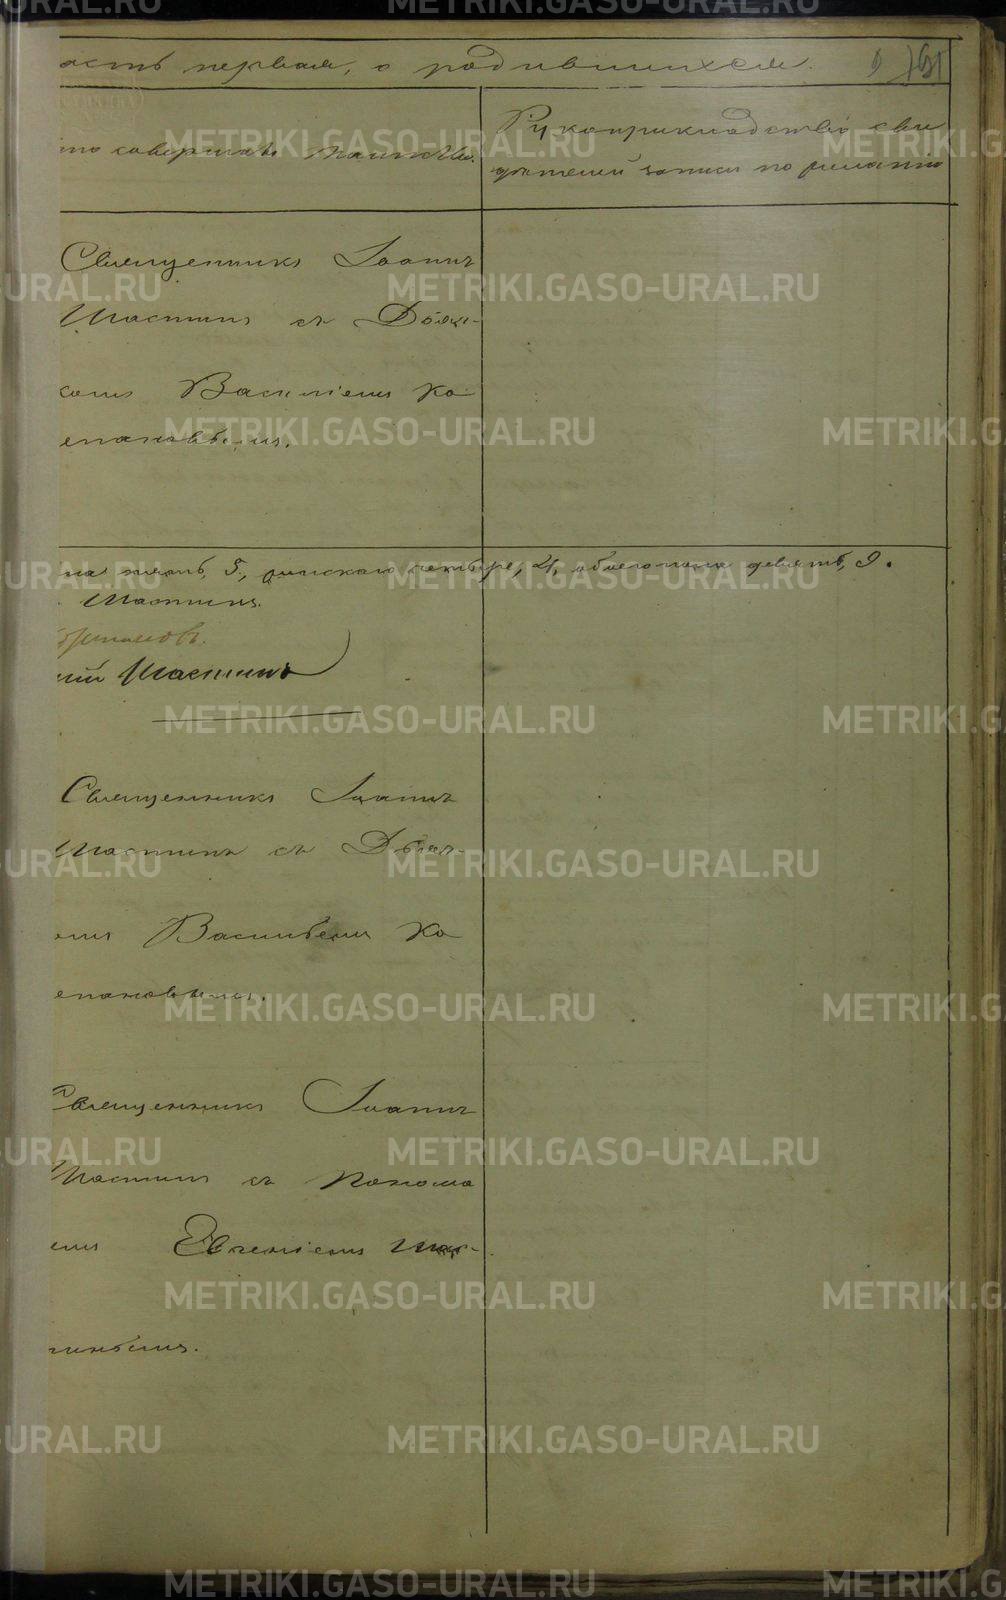 асть первая, о родившихся.
то совершалъ таинство.
Рукоприкладство сви
дѣтелей записи по желанію
Священникъ Іоаннъ
Шастинъ съ Дьяч-
комъ Василіемъ Ко
епановымъ.
на пять, 5, женскаго четыре, 4, обоего пола девять, 9.
Шастинъ.
ій Шастинъ
Священникъ Іоаннъ
Шастинъ съ Дьяч-
омъ Васильемъ Ко
епановымъ.
Священникъ Іоаннъ
Шастинъ съ Понома
емъ Евгеніемъ Шас-
тинымъ.
METRIKI.GASO-URAL.RU